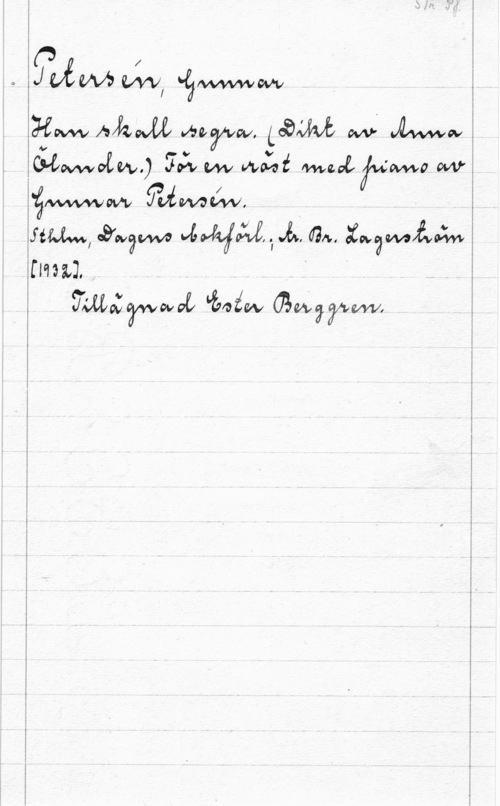 Petersén, Gunnar
Han skall segra. (Dikt av Anna
Ölander.) För en röst med piano av
Gunnar Petersén.
Sthlm, Dagens bokförl.; tr. Br. Lagerström
[1932].
Tillägnad Ester Berggren.